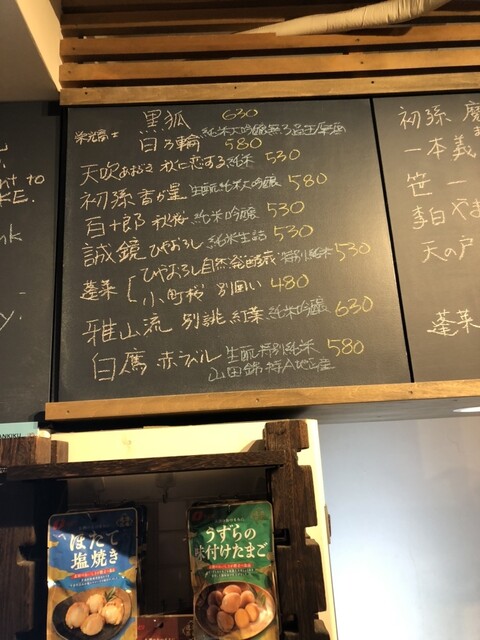 黒狐 630
栄光冨士 純米大吟醸無ろ過生原酒
白る輪 580
天吹 あおぎ 秋に恋する純米 530
初孫 香が星 生酛純米大吟醸 580
百十郎 秋桜 純米吟醸 530
誠鏡 ひやおろし 純米生詰 530
蓬莱 ひやおろし自然発酵蔵 特別純米 530
小町桜 別囲い 480
雅山流 別誂 紅葉 純米吟醸 630
白鷹 赤ラベル 生酛特別純米 580
山田錦特A地区産
初孫 魔
一本義
笹一
李白 やま
天の戸
蓬莱
nt to
KE.
nk
y.
ANKIKU
ほたて
塩焼き
うずらの
味付けたまご